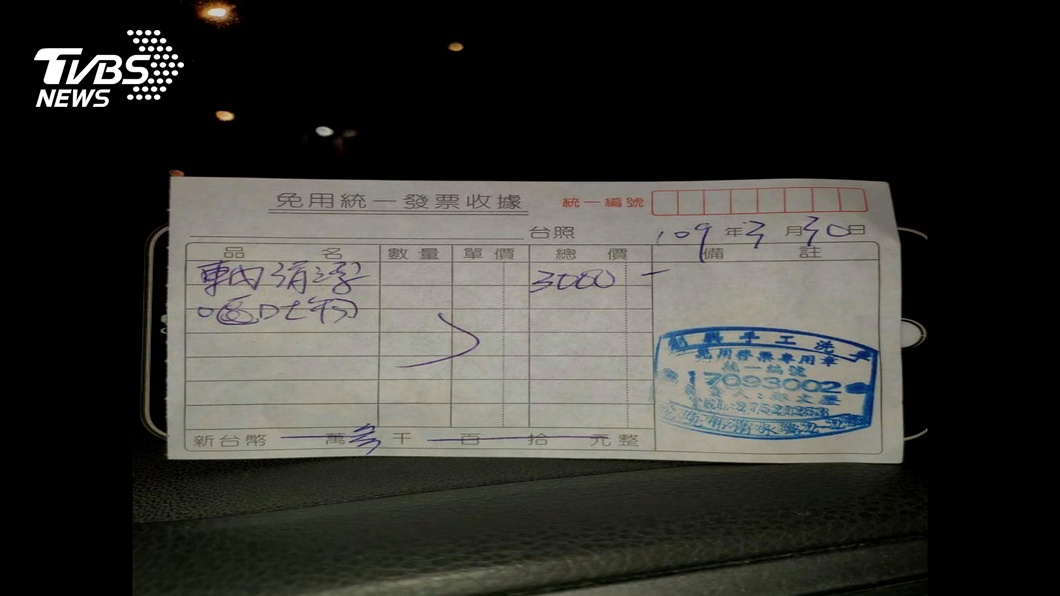 TVBS
NEWS
免用統一發票收據
統一編號
台照
109年3月30日
品名 數量 單價 總價 備註
車內清潔 3000
嘔吐物
手工洗車
免用發票專用章
統一編號
17093002
新台幣 萬參千百拾元整